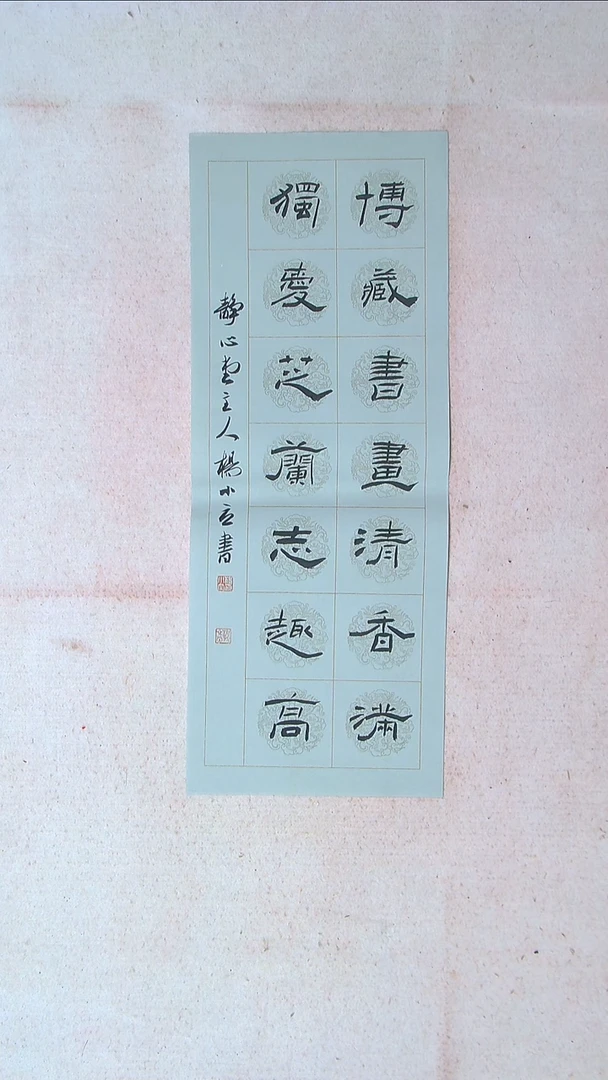 博藏書畫清香滿
獨愛芝蘭志趣高
靜心堂主人楊小云書